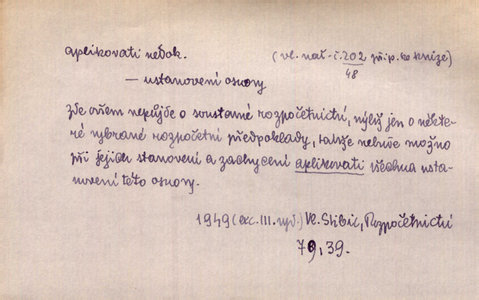 aplikovati nedok. (vl. nař. č. 202/48 při p. to kníže)
— ustanovení osnovy
Zde ovšem nepůjde o soustavné rozpočetnictví, nýbrž jen o někte-
ré vybrané rozpočetní předpoklady, takže nebude možno
při jejich stanovení a zachycení aplikovati všechna usta-
novení této osnovy.
1949 (exc. III. vyd.) Vl. Skbic, Rozpočetnictví
79, 39.